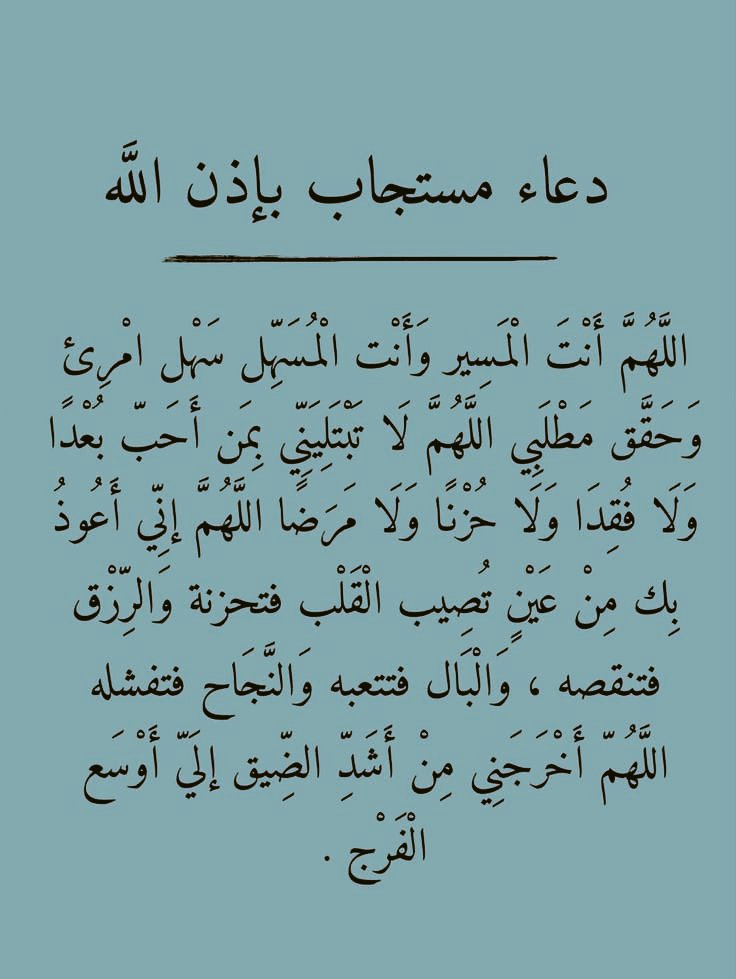 دعاء مستجاب بإذن اللَّه
اللَّهُمَّ أَنْتَ الْمَسِير وَأَنْت الْمُسَهِّل سَهْل امْرِئ
وَحَقَّق مَطْلَبِي اللَّهُمَّ لَا تَبْتَلِيَنِّي بِمَن أَحَبّ بُعْدًا
وَلَا فُقِدَا وَلَا حُزْنًا وَلَا مَرَضًا اللَّهُمَّ إنِّي أَعُوذُ
بِك مِنْ عَيْنٍ تُصِيب الْقَلْب فتحزنة وَالرِّزْق
فتنقصه ، وَالْبَال فتتعبه وَالنَّجَاح فتفشله
اللَّهُمّ أَخْرَجَنِي مِنْ أَشَدِّ الضِّيق إلَيّ أَوْسَع
الْفَرْج .